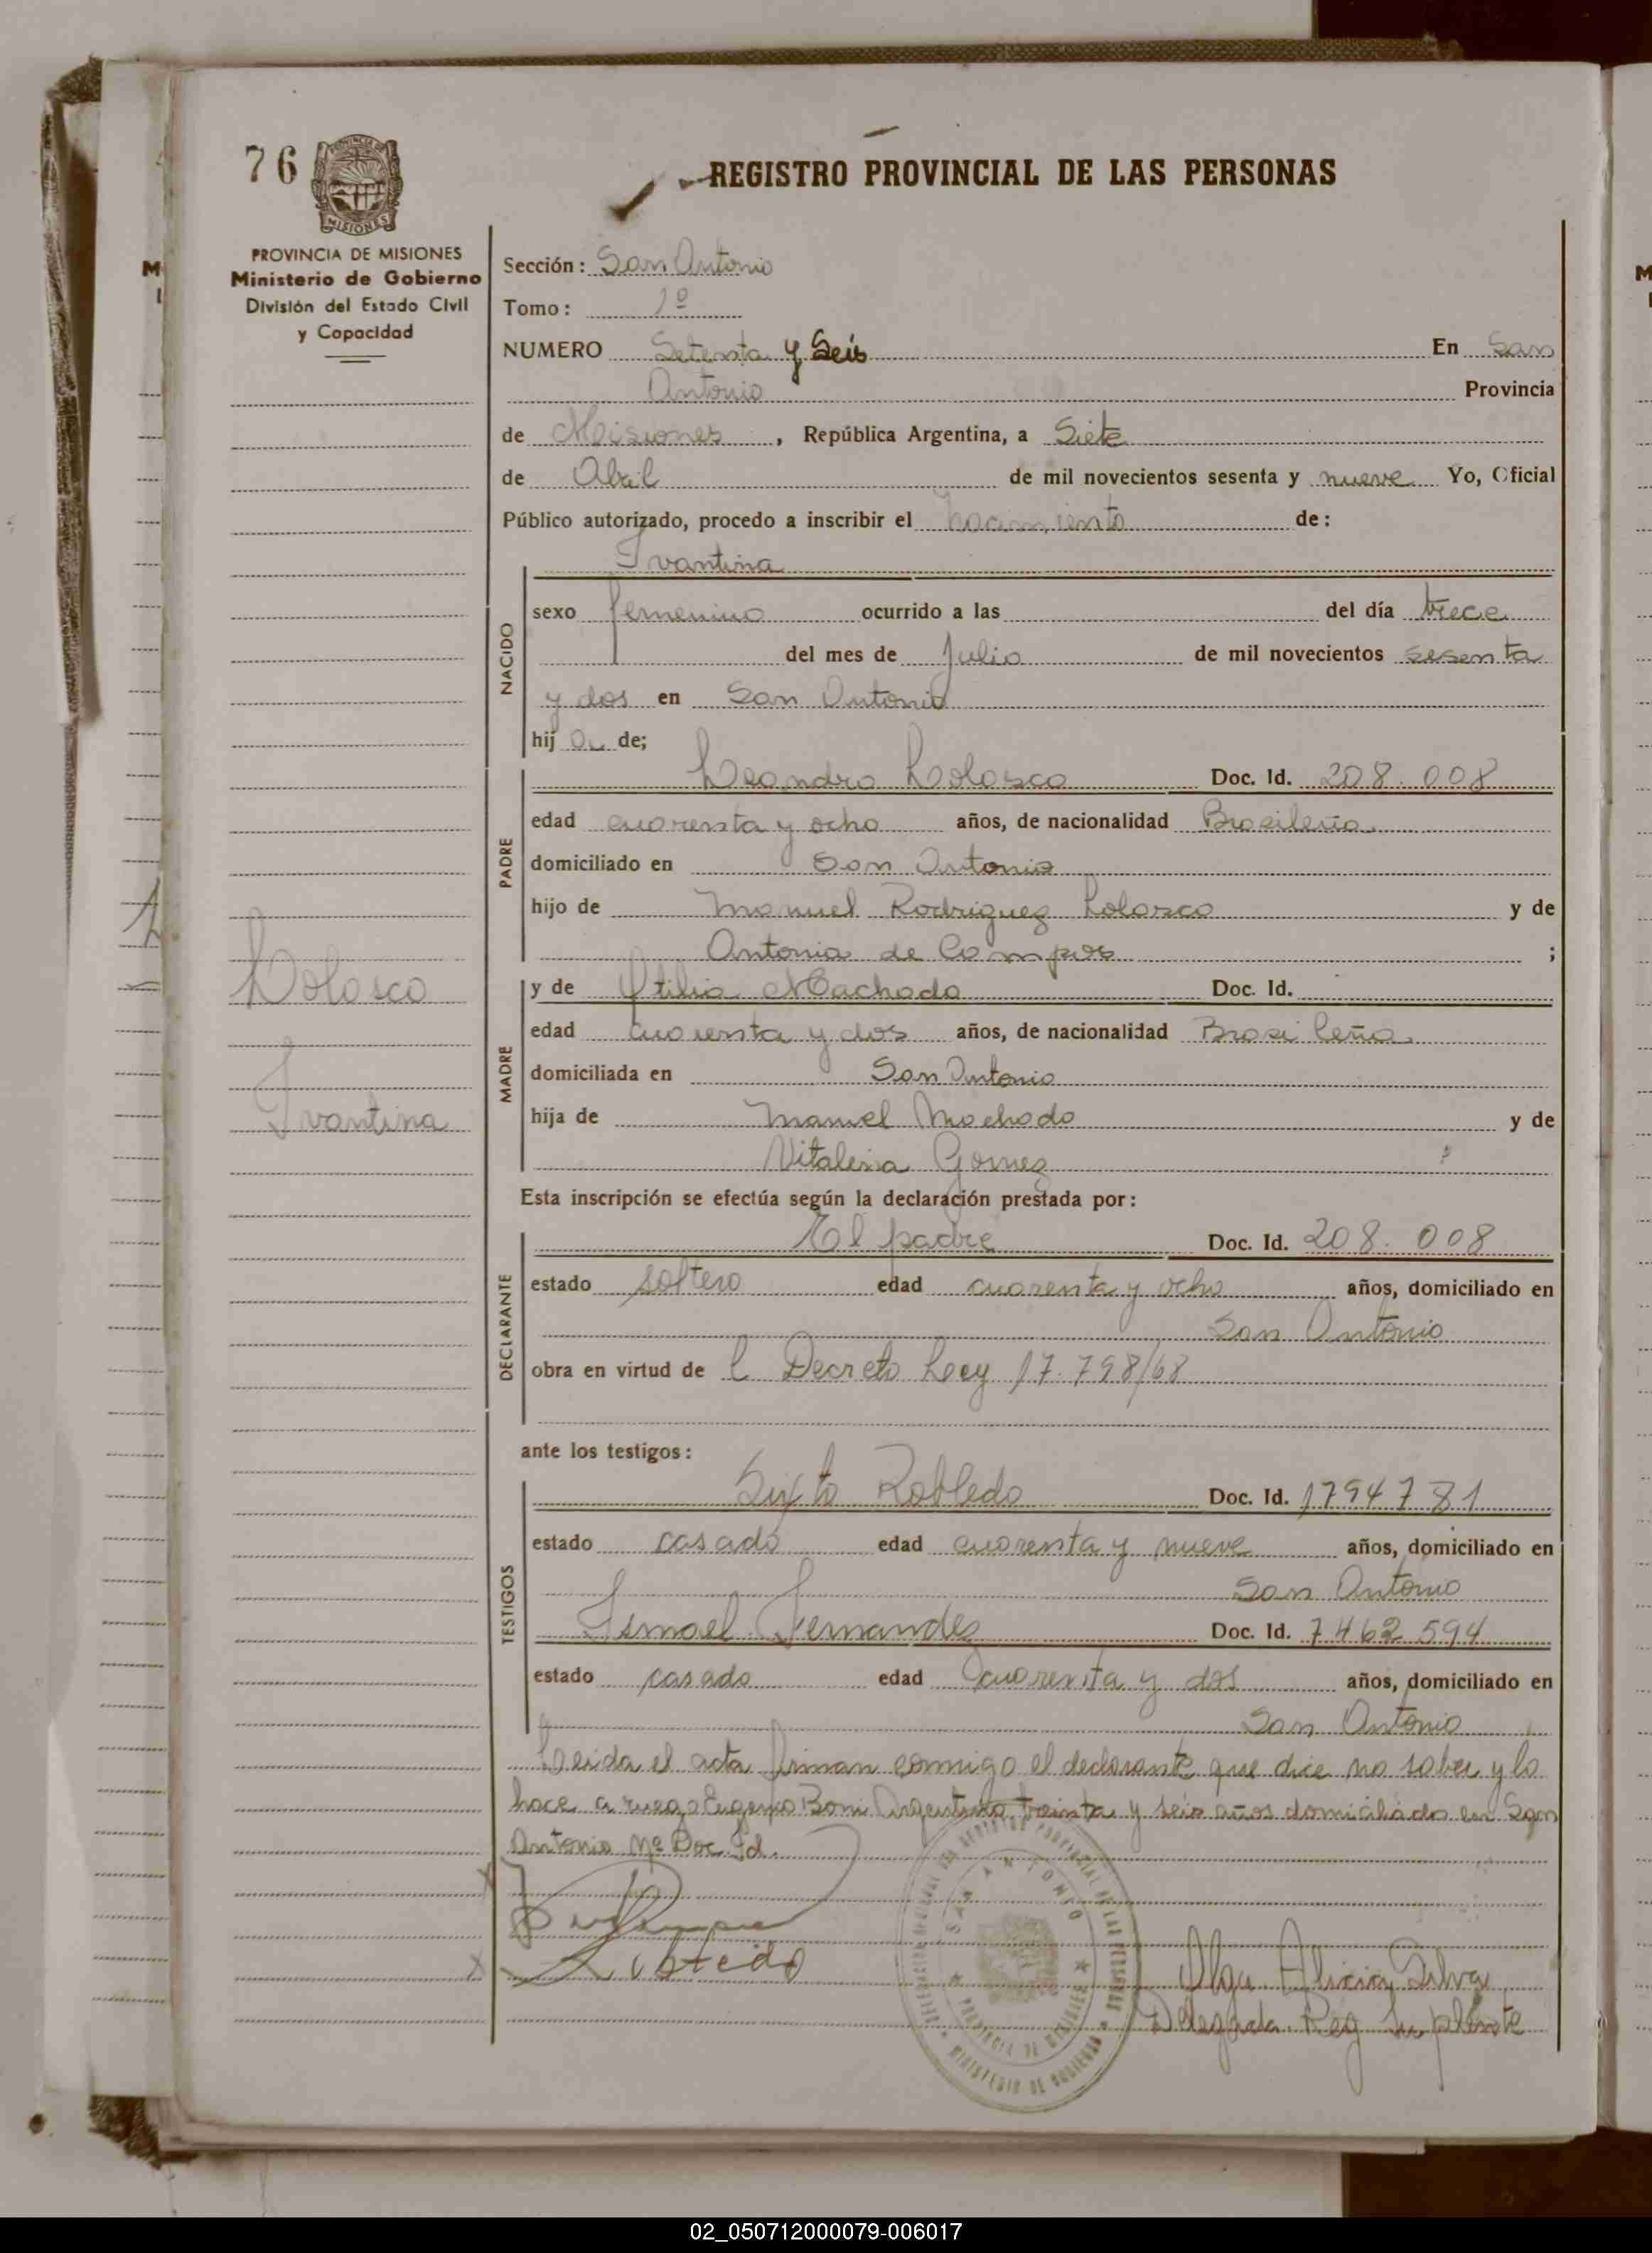 76
PROVINCIA DE MISIONES
Ministerio de Gobierno
División del Estado Civil
y Capacidad
REGISTRO PROVINCIAL DE LAS PERSONAS
Sección: San Antonio
Tomo: 1º
NUMERO Setenta y Seis En San
Antonio Provincia
de Misiones, República Argentina, a Siete
de Abril de mil novecientos sesenta y nueve Yo, Oficial
Público autorizado, procedo a inscribir el nacimiento de:
NACIDO
Ivantina
sexo femenino ocurrido a las del día trece
del mes de Julio de mil novecientos sesenta
y dos en San Antonio
hij a de;
PADRE
Leandro Lolasco Doc. Id. 208.008
edad cuarenta y ocho años, de nacionalidad Brasileña
domiciliado en San Antonio
hijo de Manuel Rodriguez Lolasco y de
Antonia de Campos ;
Lolasco
Ivantina
MADRE
y de Otilia Machado Doc. Id.
edad cuarenta y dos años, de nacionalidad Brasileña
domiciliada en San Antonio
hija de Manuel Machado y de
Vitalina Gomez ;
Esta inscripción se efectúa según la declaración prestada por:
DECLARANTE
El padre Doc. Id. 208.008
estado soltero edad cuarenta y ocho años, domiciliado en
San Antonio
obra en virtud de l Decreto Ley 17.798/68
ante los testigos:
TESTIGOS
Sixto Robledo Doc. Id. 1794781
estado casado edad cuarenta y nueve años, domiciliado en
San Antonio
Ismael Fernandez Doc. Id. 7462594
estado casado edad cuarenta y dos años, domiciliado en
San Antonio
Leida el acta firman conmigo el declarante que dice no saber y lo
hace a ruego Eugenio Boni Argentino treinta y seis años domiciliado en San
Antonio Nº Doc. Id.
Robledo
Olga Alicia Silva
Delegada Reg Suplente
SAN ANTONIO
PROVINCIA DE MISIONES
MINISTERIO DE GOBIERNO
02_050712000079-006017